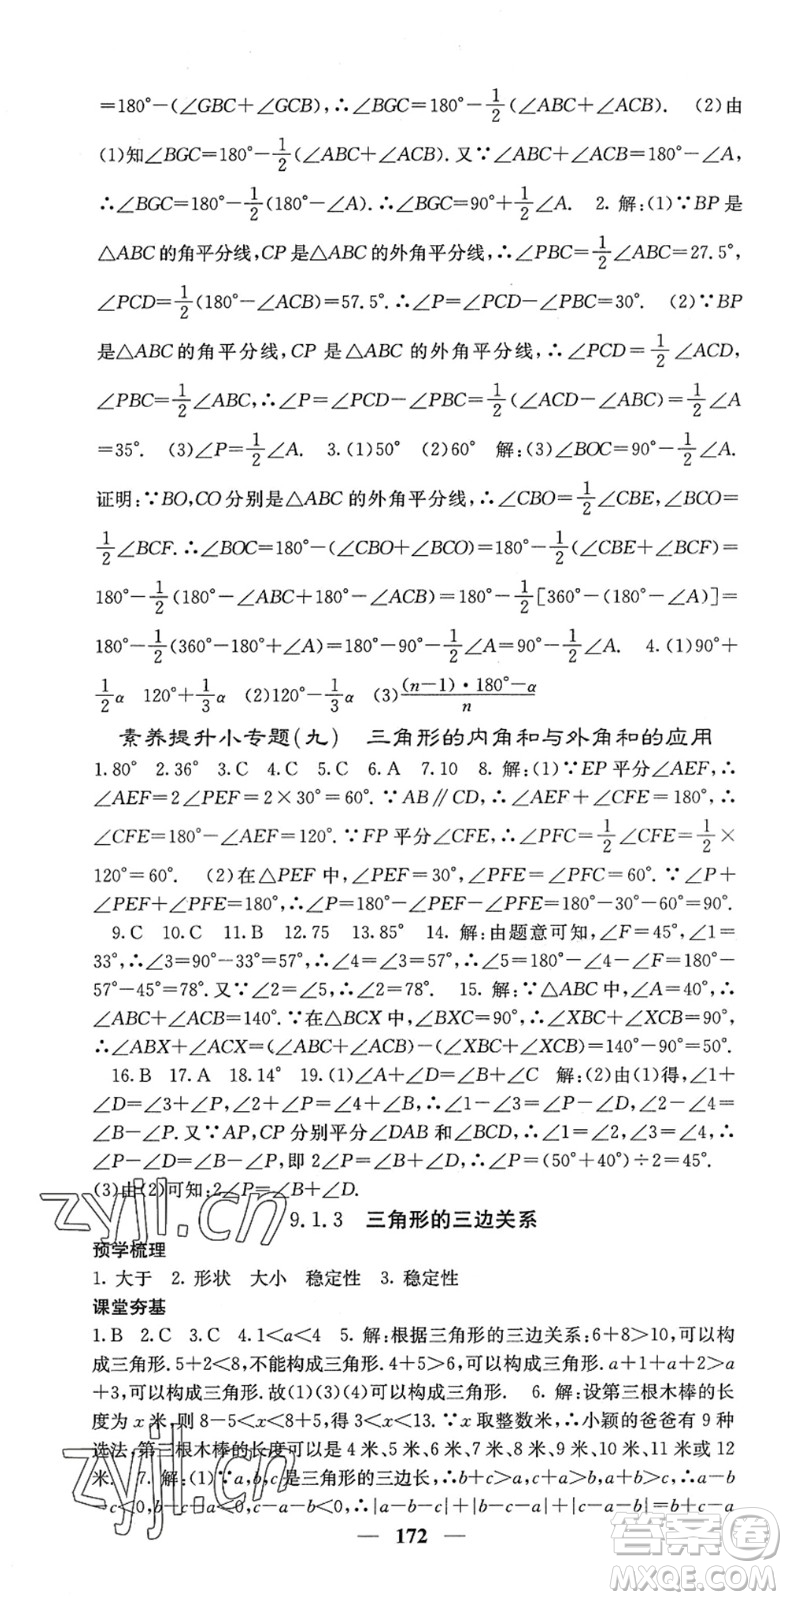 =180°-(∠GBC+∠GCB),∴∠BGC=180°-1/2(∠ABC+∠ACB). (2)由
(1)知∠BGC=180°-1/2(∠ABC+∠ACB).又∵∠ABC+∠ACB=180°-∠A,
∴∠BGC=180°-1/2(180°-∠A).∴∠BGC=90°+1/2∠A. 2. 解:(1)∵BP是
△ABC的角平分线,CP是△ABC的外角平分线,∴∠PBC=1/2∠ABC=27.5°,
∠PCD=1/2(180°-∠ACB)=57.5°.∴∠P=∠PCD-∠PBC=30°. (2)∵BP
是△ABC的角平分线,CP是△ABC的外角平分线,∴∠PCD=1/2∠ACD,
∠PBC=1/2∠ABC,∴∠P=∠PCD-∠PBC=1/2(∠ACD-∠ABC)=1/2∠A
=35°. (3)∠P=1/2∠A. 3.(1)50° (2)60° 解:(3)∠BOC=90°-1/2∠A.
证明:∵BO,CO分别是△ABC的外角平分线,∴∠CBO=1/2∠CBE,∠BCO=
1/2∠BCF.∴∠BOC=180°-(∠CBO+∠BCO)=180°-1/2(∠CBE+∠BCF)=
180°-1/2(180°-∠ABC+180°-∠ACB)=180°-1/2[360°-(180°-∠A)]=
180°-1/2(360°-180°+∠A)=180°-90°-1/2∠A=90°-1/2∠A. 4.(1)90°+
1/2α 120°+1/3α (2)120°-1/3α (3)(n-1)·180°-α/n
素养提升小专题(九) 三角形的内角和与外角和的应用
1.80° 2.36° 3.C 4.C 5.C 6.A 7.10 8. 解:(1)∵EP平分∠AEF,∴
∠AEF=2∠PEF=2×30°=60°.∵AB∥CD,∴∠AEF+∠CFE=180°,∴
∠CFE=180°-∠AEF=120°.∵FP平分∠CFE,∴∠PFC=1/2∠CFE=1/2×
120°=60°. (2)在△PEF中,∠PEF=30°,∠PFE=∠PFC=60°.∵∠P+
∠PEF+∠PFE=180°,∴∠P=180°-∠PEF-∠PFE=180°-30°-60°=90°.
9.C 10.C 11.B 12.75 13.85° 14. 解:由题意可知,∠F=45°,∠1=
33°,∴∠3=90°-33°=57°,∴∠4=∠3=57°,∴∠5=180°-∠4-∠F=180°-
57°-45°=78°.又∵∠2=∠5,∴∠2=78°. 15. 解:∵△ABC中,∠A=40°,∴
∠ABC+∠ACB=140°.∵在△BCX中,∠BXC=90°,∴∠XBC+∠XCB=90°,
∴∠ABX+∠ACX=(∠ABC+∠ACB)-(∠XBC+∠XCB)=140°-90°=50°.
16.B 17.A 18.14° 19.(1)∠A+∠D=∠B+∠C 解:(2)由(1)得,∠1+
∠D=∠3+∠P,∠2+∠P=∠4+∠B,∴∠1-∠3=∠P-∠D,∠2-∠4=
∠B-∠P.又∵AP,CP分别平分∠DAB和∠BCD,∴∠1=∠2,∠3=∠4,∴
∠P-∠D=∠B-∠P,即2∠P=∠B+∠D,∴∠P=(50°+40°)÷2=45°.
(3)由(2)可知:2∠P=∠B+∠D.
9.1.3 三角形的三边关系
预学梳理
1. 大于 2. 形状 大小 稳定性 3. 稳定性
课堂夯基
1.B 2.C 3.C 4.1<a<4 5. 解:根据三角形的三边关系:6+8>10,可以构
成三角形.5+2<8,不能构成三角形.4+5>6,可以构成三角形.a+1+a+2>a
+3,可以构成三角形.故(1)(3)(4)可以构成三角形. 6. 解:设第三根木棒的长
度为x米,则8-5<x<8+5,得3<x<13.∵x取整数米,∴小颖的爸爸有9种
选法,第三根木棒的长度可以是4米、5米、6米、7米、8米、9米、10米、11米或12
米. 7. 解:(1)∵a,b,c是三角形的三边长,∴b+c>a,c+a>b,a+b>c,∴a-b
-c<0,b-c-a<0,c-a-b<0,∴|a-b-c|+|b-c-a|+|c-a-b|=b+c-a
172
zyjl.cn
zyjl.cn
答案圈
MXQE.COM